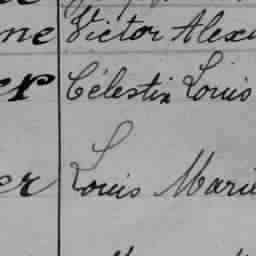 ne Victor Alex
er Célestin Louis
er Louis Marie